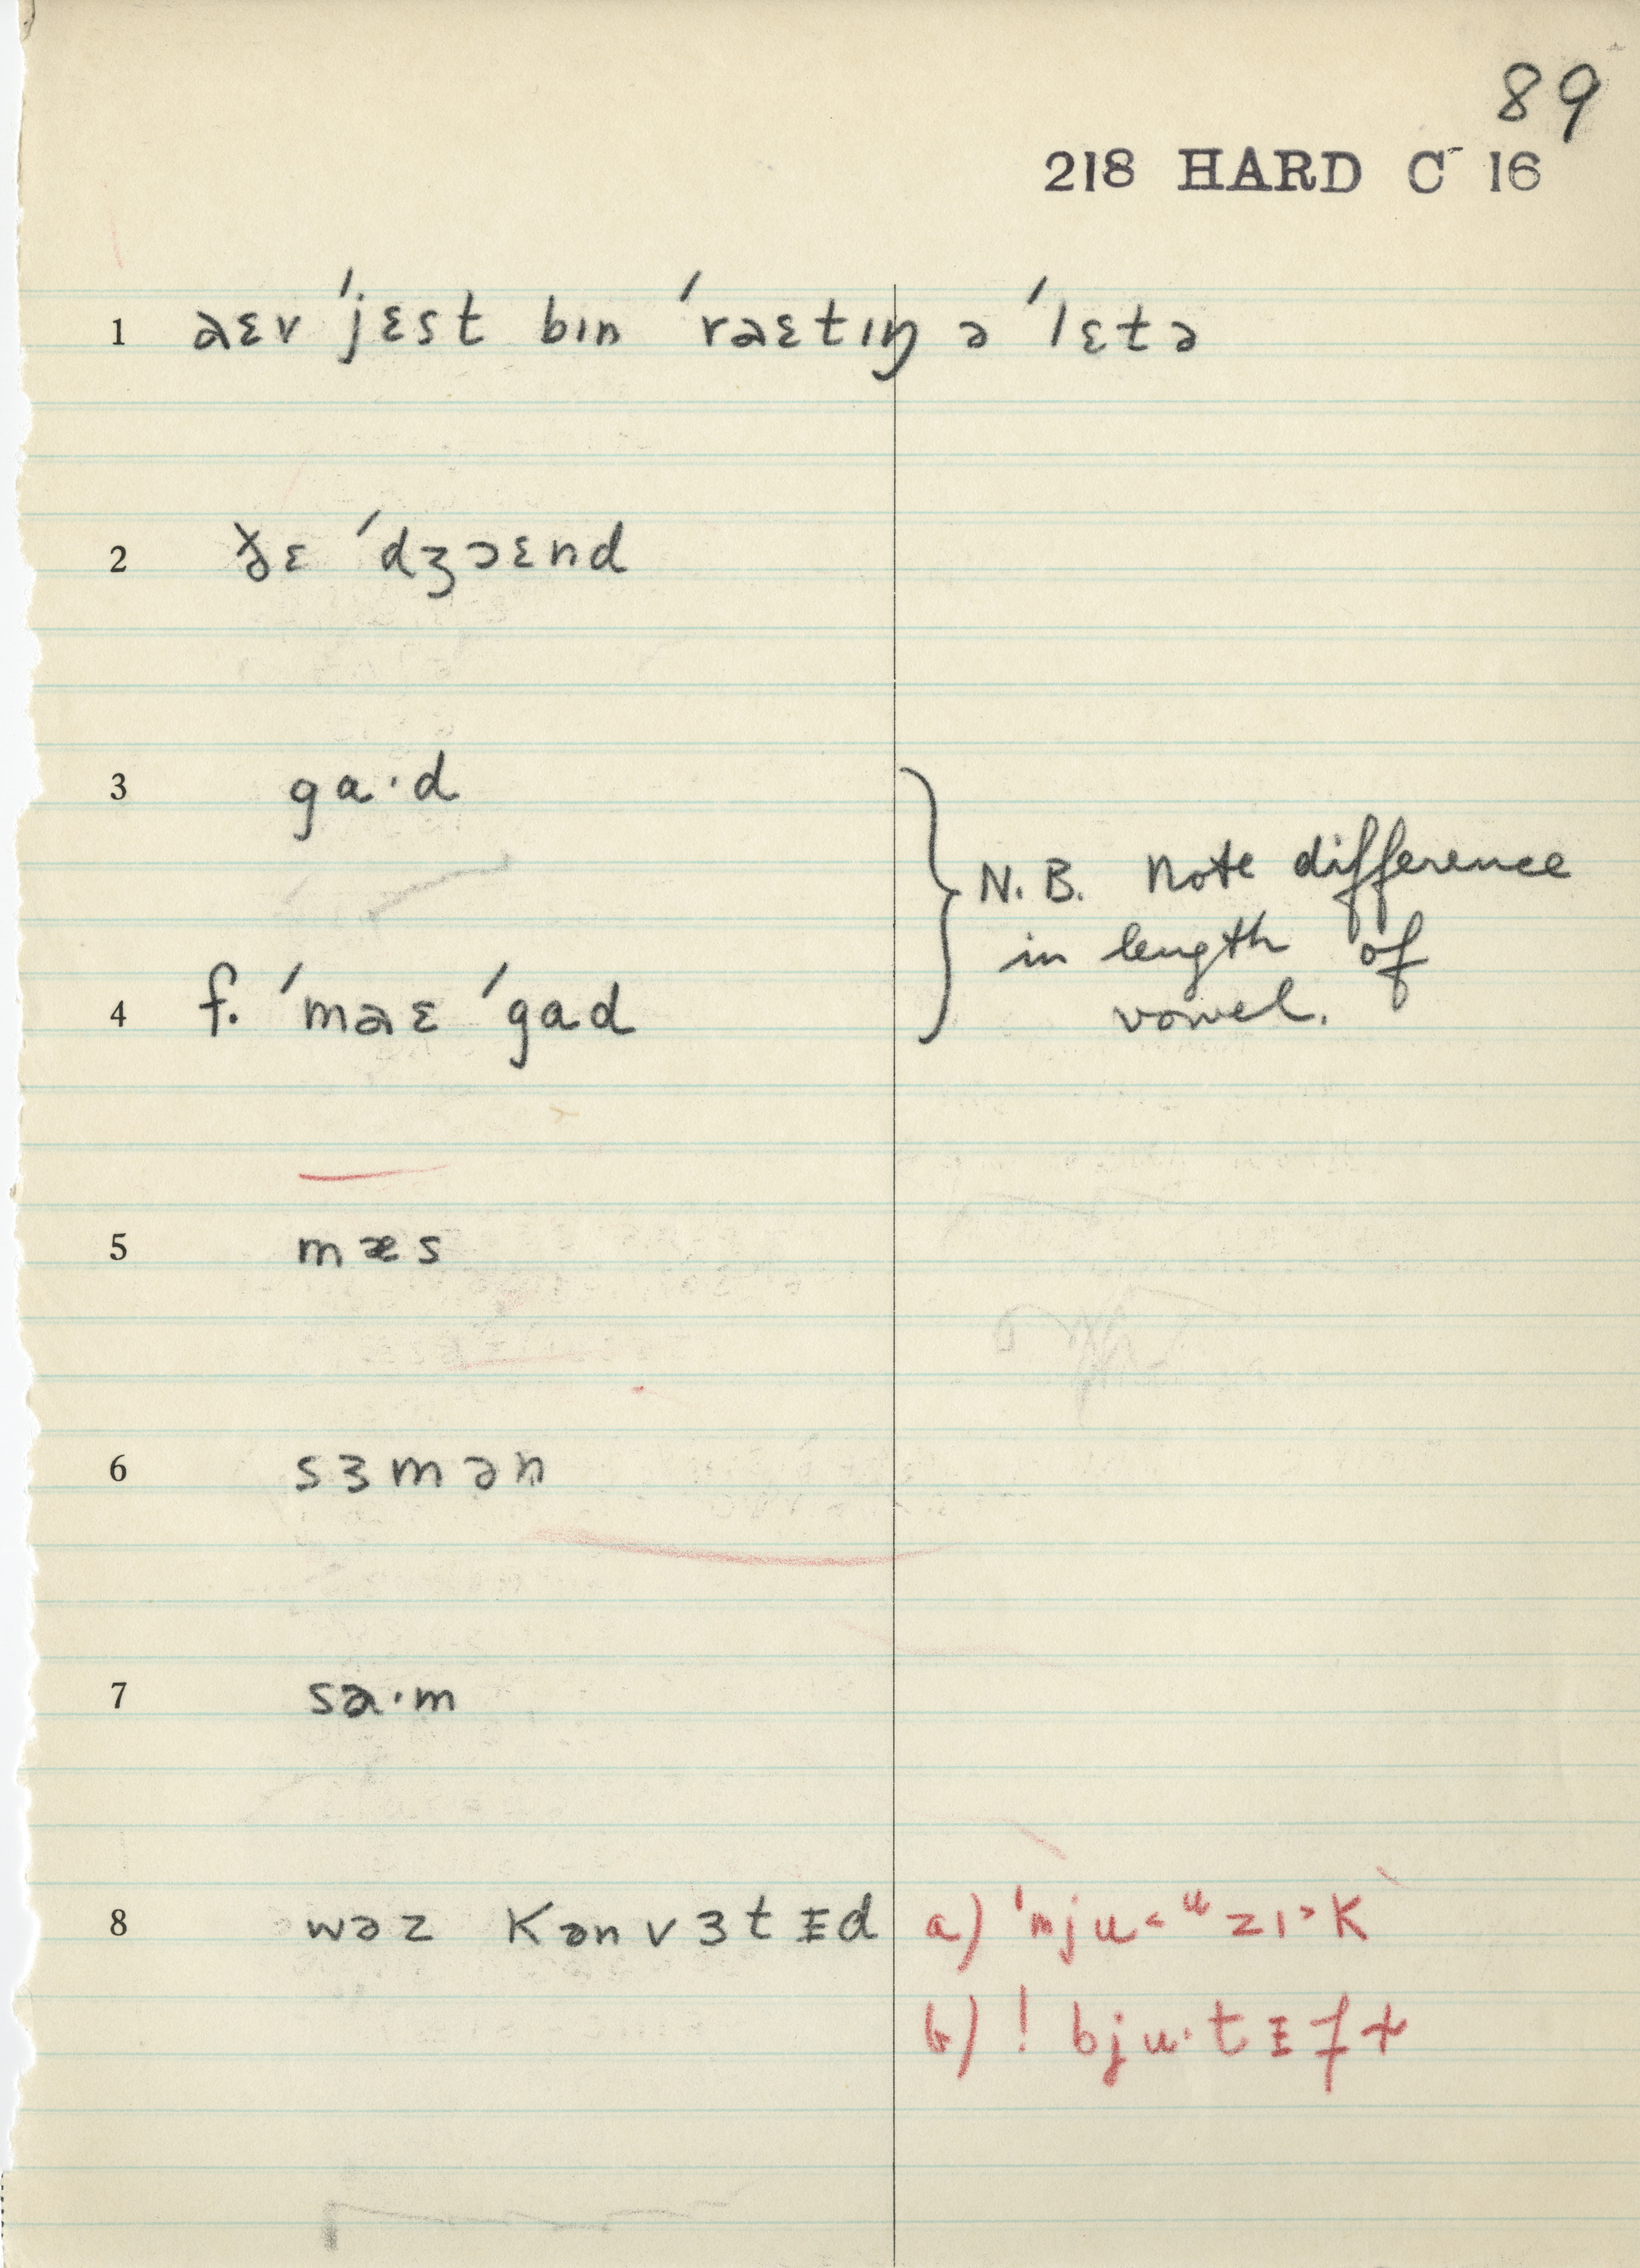 89
218 HARD C 16
1 aɛv ˈjɛst bɪn ˈraɛtɪŋ ə ˈlɛtə
2 ɛ ˈdʒɔɛnd
3 ga·d
4 f. ˈmaɛ ˈgad
N.B. Note difference
in length of
vowel.
5 mæs
6 sɜmən
7 sa·m
8 wəz kənvɜtɪd
a) ˈmju<ᵘzɪ>k
b) ! bju·tɪfɫ